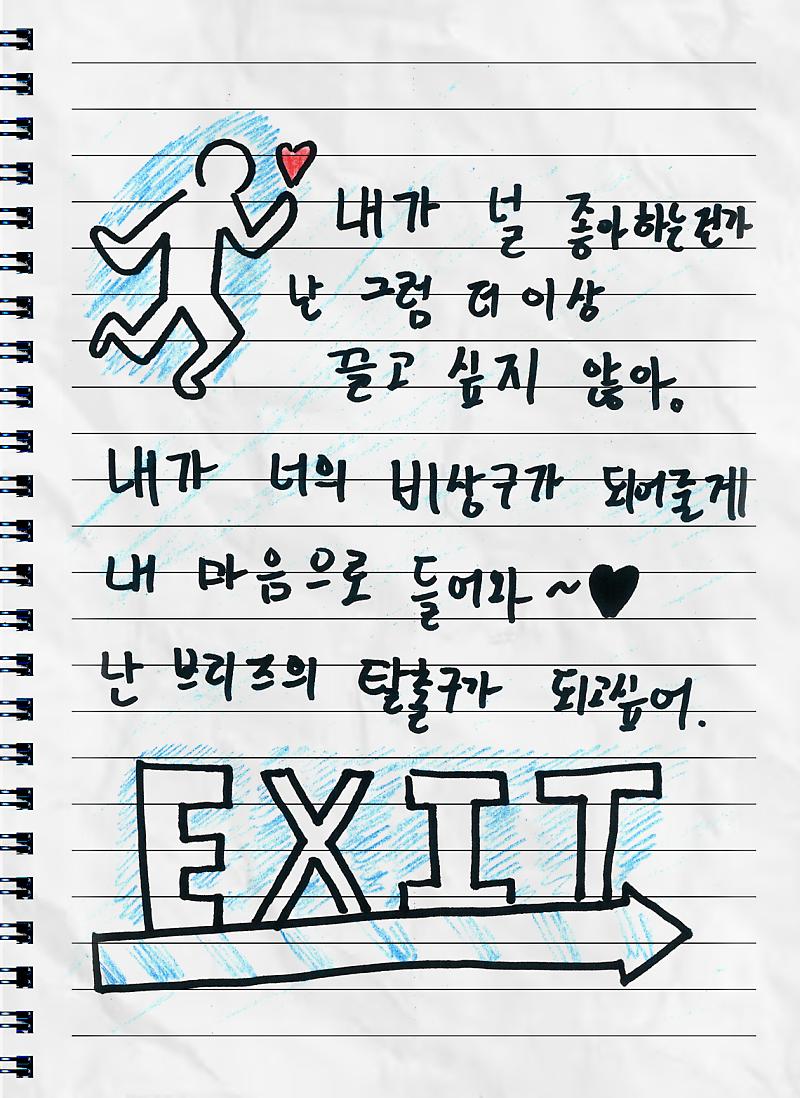 내가 널 좋아하는건가
난 그럼 더 이상
끌고 싶지 않아.
내가 너의 비상구가 되어줄게
내 마음으로 들어와~♥
난 브리즈의 탈출구가 되고싶어.
EXIT